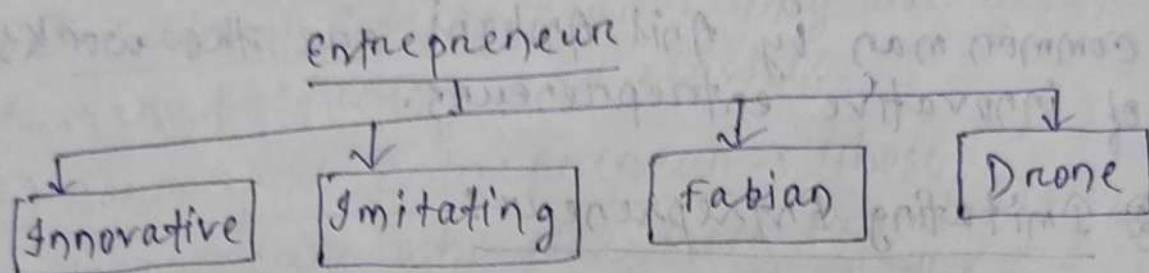 entrepreneur
Innovative
Imitating
Fabian
Drone